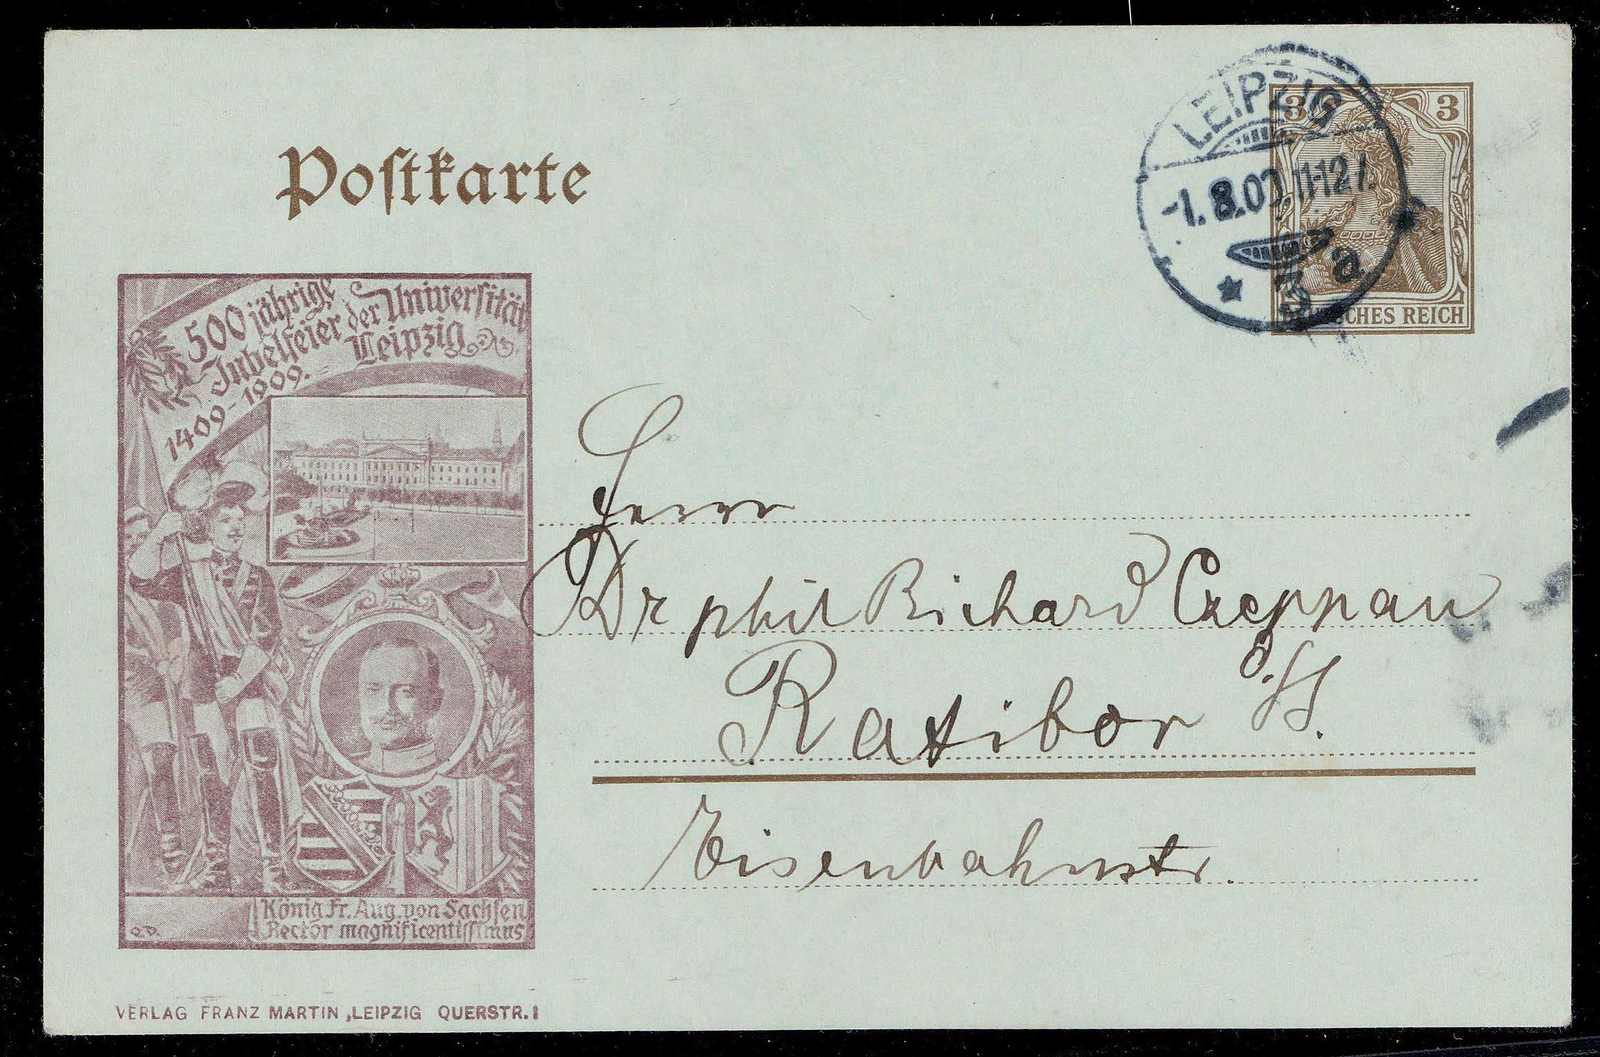 Postkarte
LEIPZIG
-1.8.09.11-12V.
* 3 a
3 3
DEUTSCHES REICH
500 jährige
Jubelfeier der Universität
Leipzig
1409-1909.
Herrn
Dr phil Richard Czeppan
Ratibor O/S.
Eisenbahnstr.
König Fr. Aug. von Sachsen
Rector magnificentissimus
VERLAG FRANZ MARTIN, LEIPZIG QUERSTR. 1